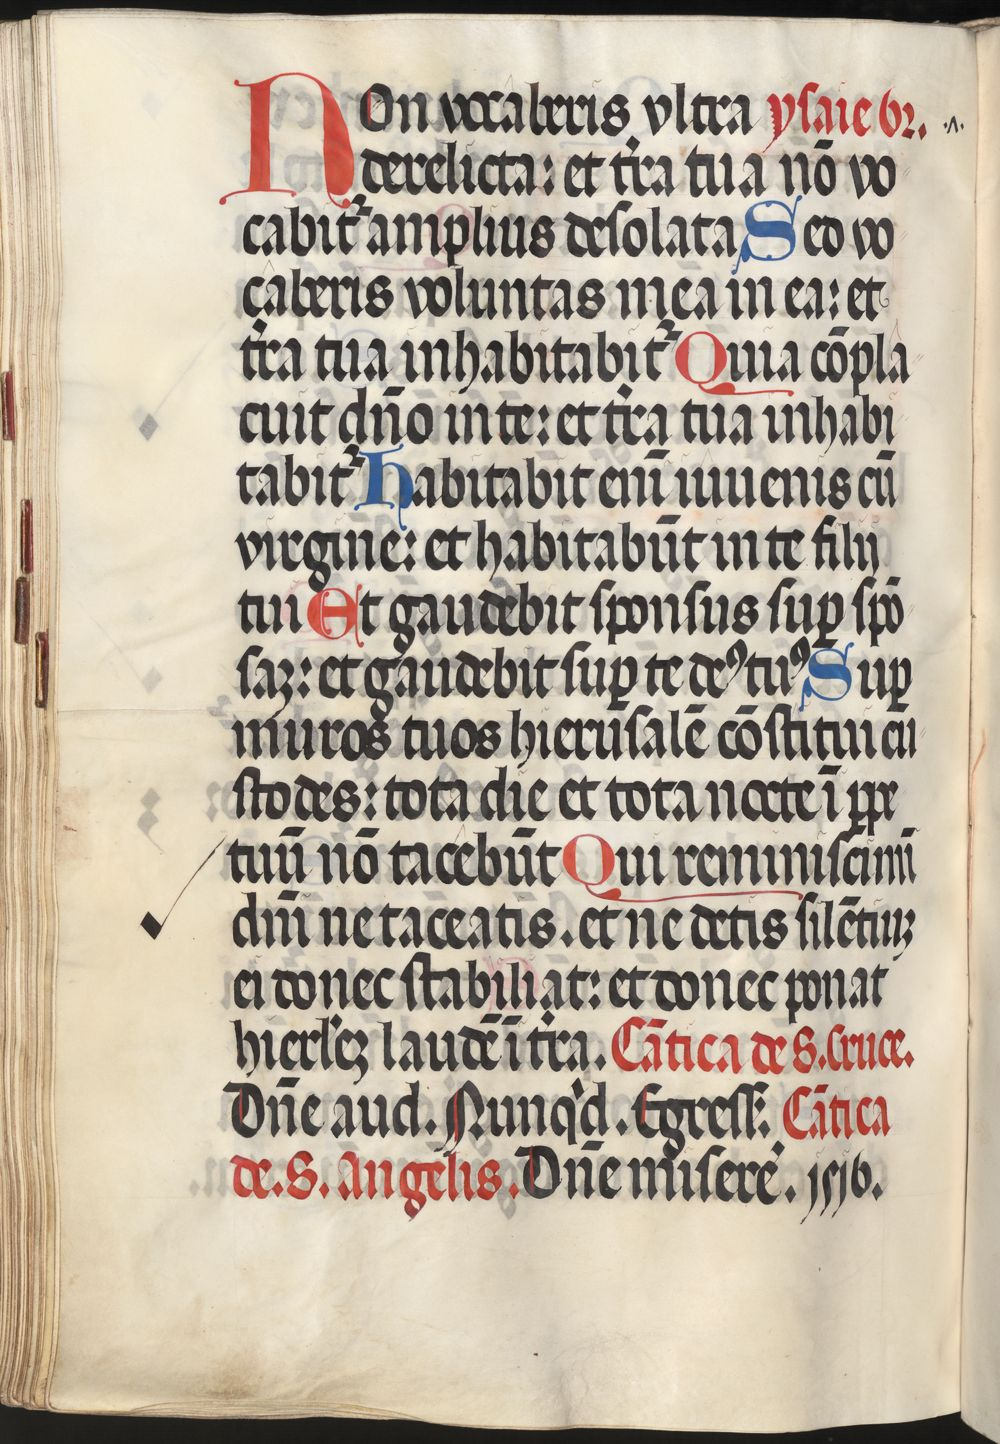 NOn vocaberis vltra ysaie 62. ·A·
derelicta: et t̄ra tua nō vo
cabit᷑ amplius desolata Sed vo
caberis voluntas mea in ea: et
t̄ra tua inhabitabit᷑ Quia cōpla
cuit dn̄o in te: et t̄ra tua inhabi
tabit᷑ Habitabit eni᷑ iuuenis cū
virgine: et habitabūt in te filij
tui Et gaudebit sponsus suꝑ spō
saꝫ: et gaudebit suꝑ te deꝰ tuꝰ Suꝑ
muros tuos hierusalē cōstitui cu
stodes: tota die et tota nocte ī ꝑpe
tuū nō tacebūt Qui reminiscimī
dn̄i ne taceatis. et ne detis silētiuꝫ
ei donec stabiliat: et donec ponat
hierlꝫ laudē ī t̄ra. Cātica de S. Cruce.
Dn̄e aud. Nunq᷑d. Egress. Cātica
de. S. Angelis. Dn̄e misere. 1516.